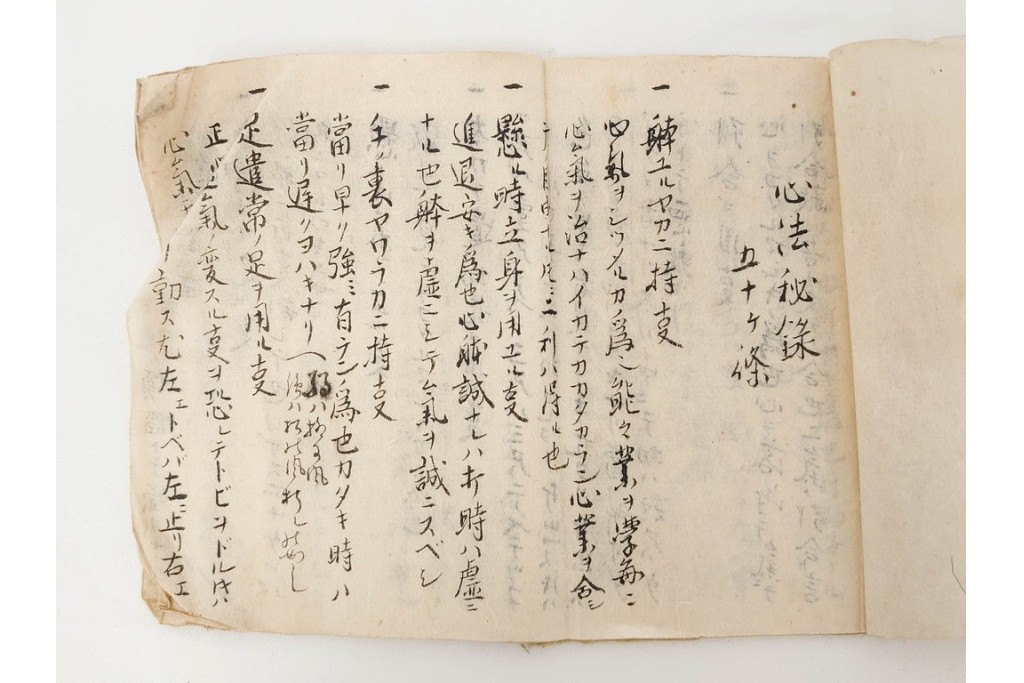 心法秘錄
五十ケ條
一
躰ユルヤカニ持支
心氣ヲシツメルカ爲ニ能々業ヲ學毎ニ
心氣ヲ治ナハイカテカカタカラン心業ヲ合シ
自由ナル 利ハ得ル也
一
懸ル時立身ヲ用ユル支
進退安キ爲也心躰誠ナレハ打時ハ虚ニ
ナル也躰ヲ虚ニシテ心氣ヲ誠ニスベシ
一
手ノ裏ヤワラカニ持支
當リ早リ強ミ有ラン爲也カタキ時ハ
當リ遅クヨハキナリ
弱ハ柳ニ風
強ハ 風折レ如シ
一
足遣常ノ足ヲ用ル支
正 心氣変スル支ヲ恐レテトビヲドルハ
心氣 動ス 左エトベバ左ニ止リ右エ